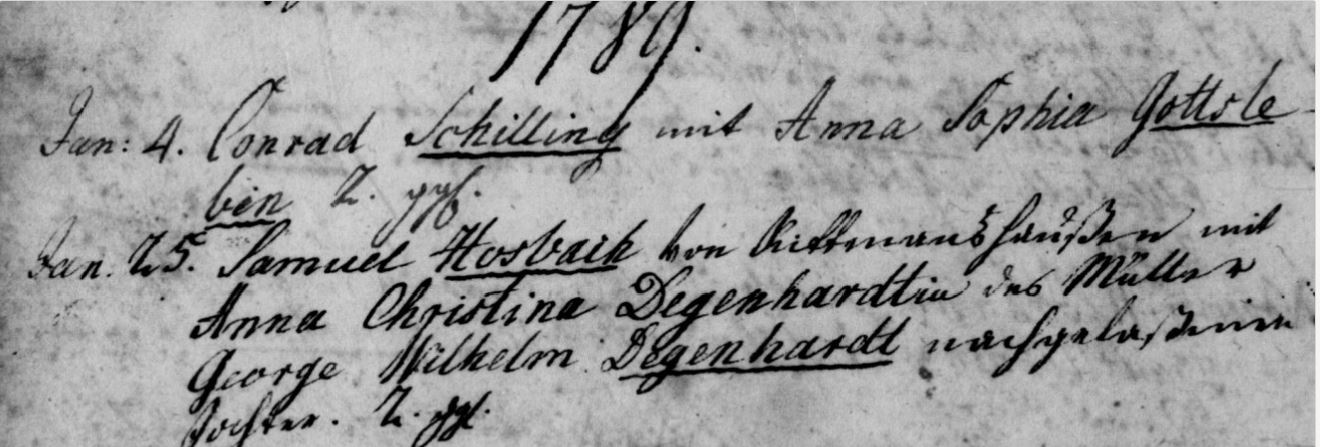 1789.
Jan: 4. Conrad Schilling mit Anna Sophia Gottsle-
ben 2. ggf.
Jan. 25. Samuel Hosbach von Rittmanshaußen mit
Anna Christina Degenhardtin des Müller
George Wilhelm Degenhardt nachgelaßenen
Tochter. 2. ggf.